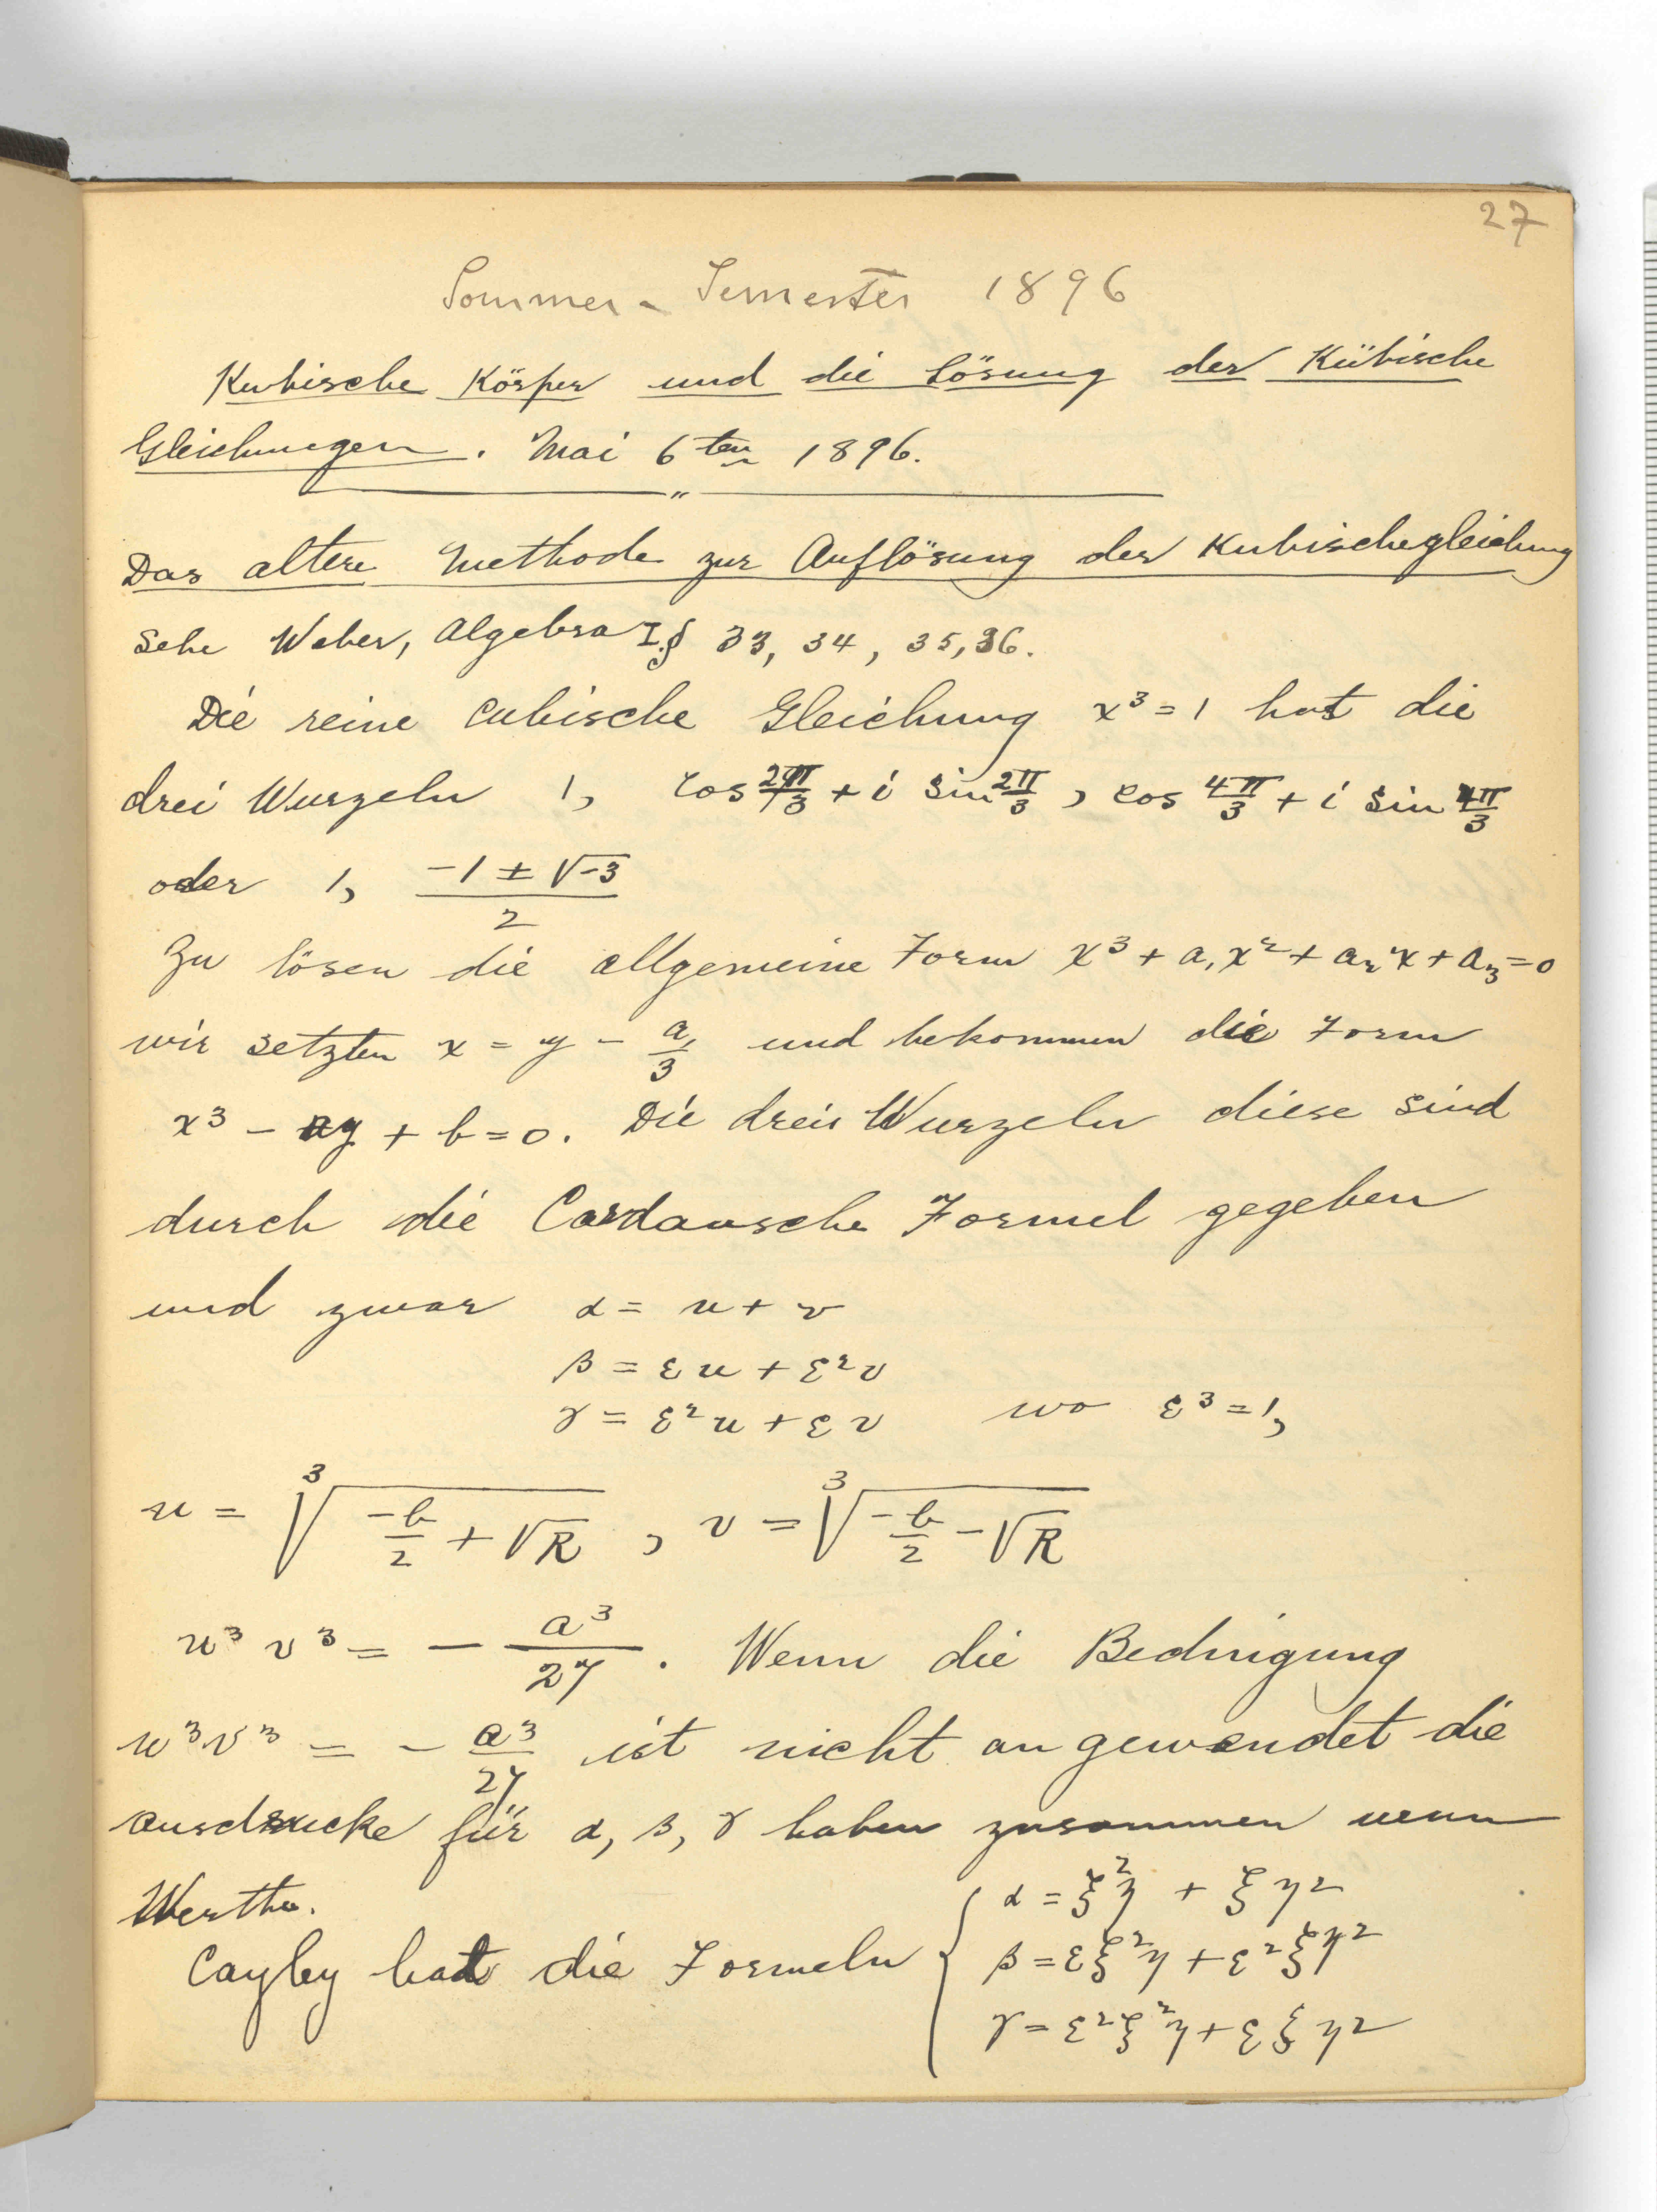 27
Sommer-Semester 1896
Kubische Körper und die Lösung der Kübische
Gleichungen. Mai 6ten 1896.
Das altere Methode zur Auflösung der Kubischegleichung
Sehe Weber, Algebra I.§ 33, 34, 35, 36.
Die reine cubische Gleichung x³ = 1 hat die
drei Wurzeln 1, cos 2π/3 + i sin 2π/3, cos 4π/3 + i sin 4π/3
oder 1, (-1 ± √-3)/2
Zu lösen die allgemeine Form x³ + a₁x² + a₂x + a₃ = 0
wir setzten x = y - a₁/3 und bekommen die Form
x³ - ay + b = 0. Die drei Wurzeln diese sind
durch die Cardansche Formel gegeben
und zwar α = u + v
β = εu + ε²v
γ = ε²u + εv wo ε³ = 1,
u = ∛(-b/2 + √R), v = ∛(-b/2 - √R)
u³v³ = - a³/27. Wenn die Bedingung
u³v³ = - a³/27 ist nicht angewendet die
ausdrucke für α, β, γ haben zusammen neun
Werthe.
Cayley hat die Formeln { α = ξ²η + ξη²
β = εξ²η + ε²ξη²
γ = ε²ξ²η + εξη²